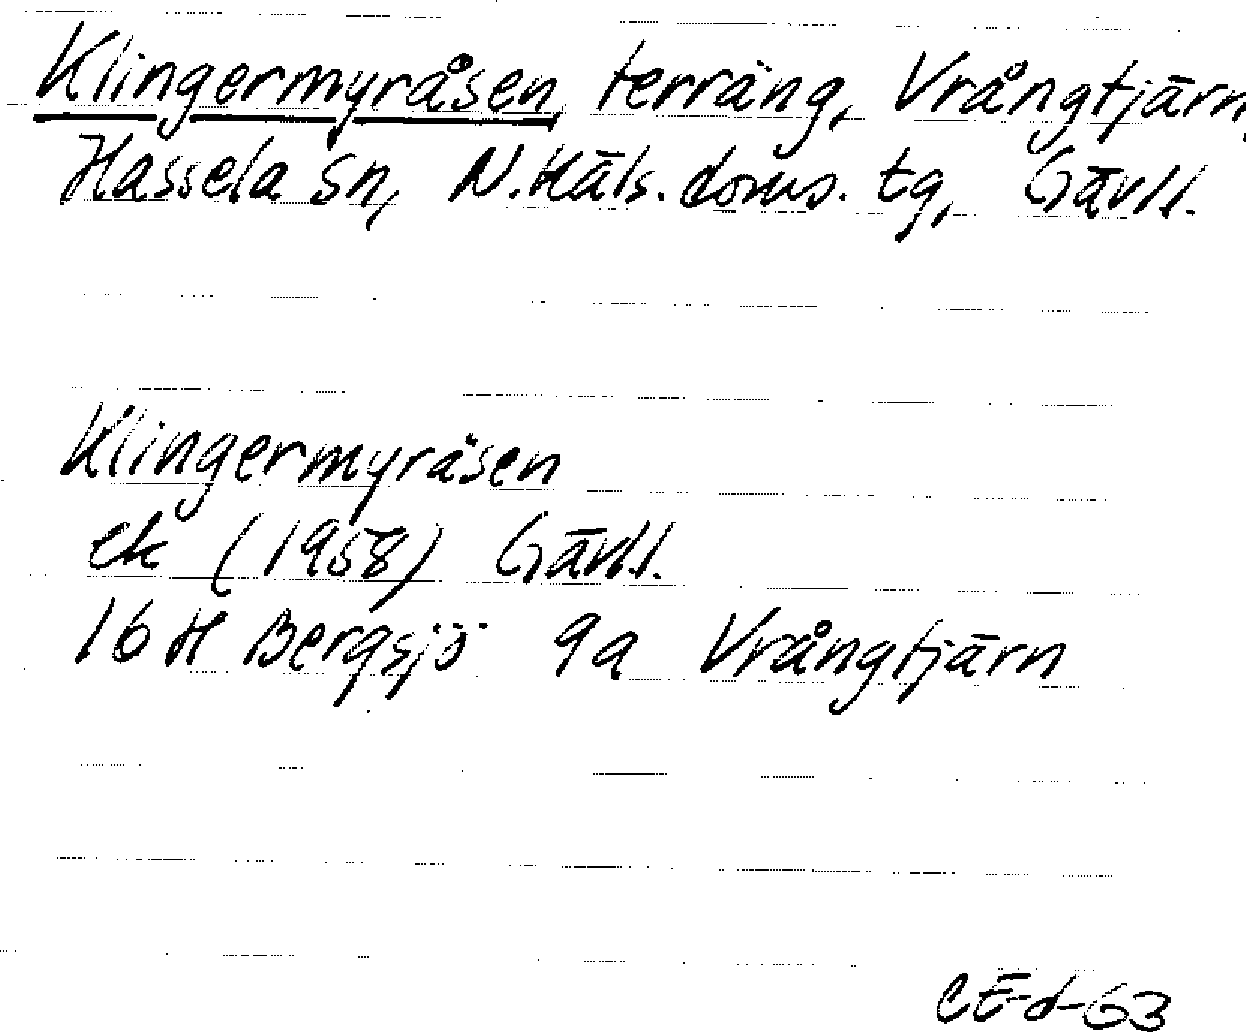 Klingermyråsen, terräng, Vrångtjärn,
Hassela sn, N.Häls.doms. tg, Gävl.l.
Klingermyråsen
ek (1958) Gävl.l.
16 H Bergsjö 9a Vrångtjärn
CE-d-63